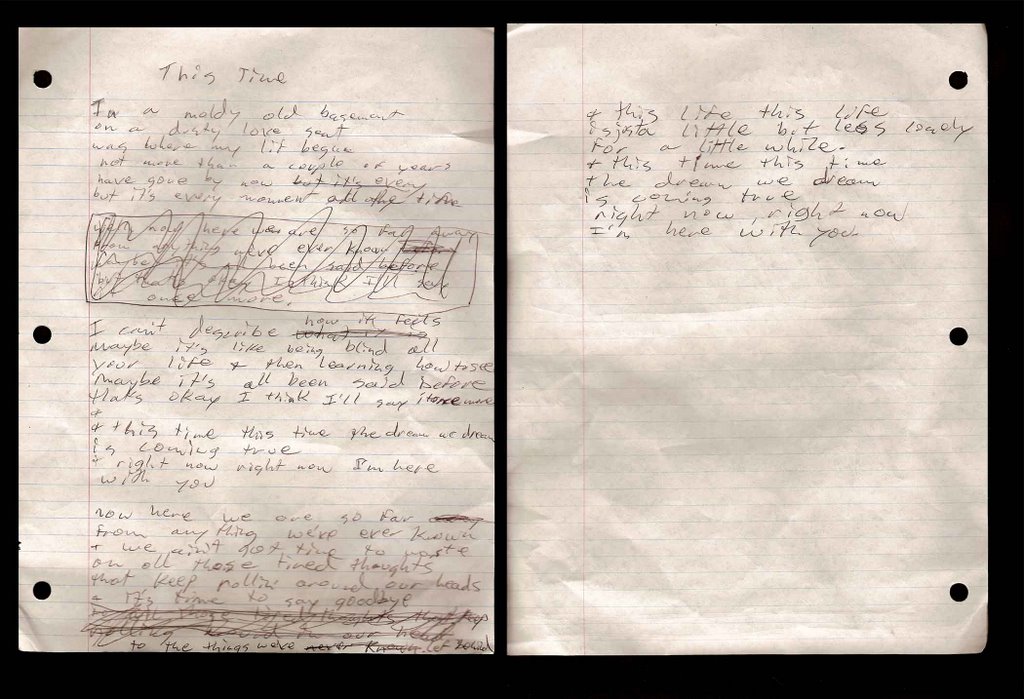 This Time
In a moldy old basement
on a dusty love seat
was where my lif began
not more than a couple of years
have gone by now but it's every
but it's every moment all the time
now here we are so far away
from anything we've ever known
Maybe it's all been said before
but thats okay I think I'll say
once more.
I can't describe what it is how it feels
maybe it's like being blind all
your life & then learning how to see
Maybe it's all been said before
thats okay I think I'll say it once more
&
& this time this time the dream we dream
is coming true
& right now right now I'm here
with you
now here we are so far away
from anything we've ever known
& we ain't got time to waste
on all those tired thoughts
that keep rollin' around our heads
& it's time to say goodbye
to all those tired thoughts that keep
rolling around in our heads
to the things we've never known let behind
& this life this life
is just a little bit less lonely
for a little while.
& this time this time
the dream we dream
is coming true
right now, right now
I'm here with you.